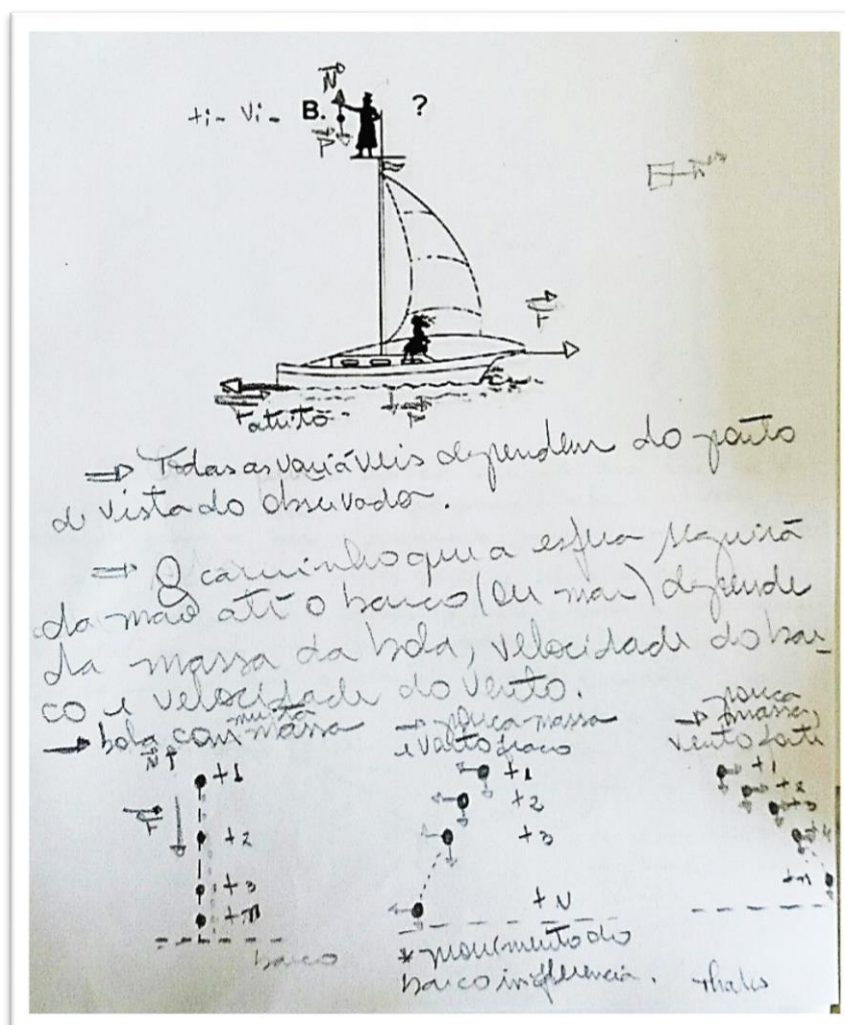 N
ti - vi - B. ?
P
F
F atrito
P
⇒ Todas as variáveis dependem do ponto
de vista do observador.
⇒ O caminho que a esfera seguirá
da mão até o barco (ou mar) depende
da massa da bola, velocidade do bar-
co e velocidade do vento.
→ bola com muita massa
→ pouca massa
e vento fraco
→ pouca massa,
vento forte
N
F
t1
t2
t3
tn
barco
t1
t2
t3
tN
* movimento do
barco influencia.
t1
t2
t3
t4
tn
Thales